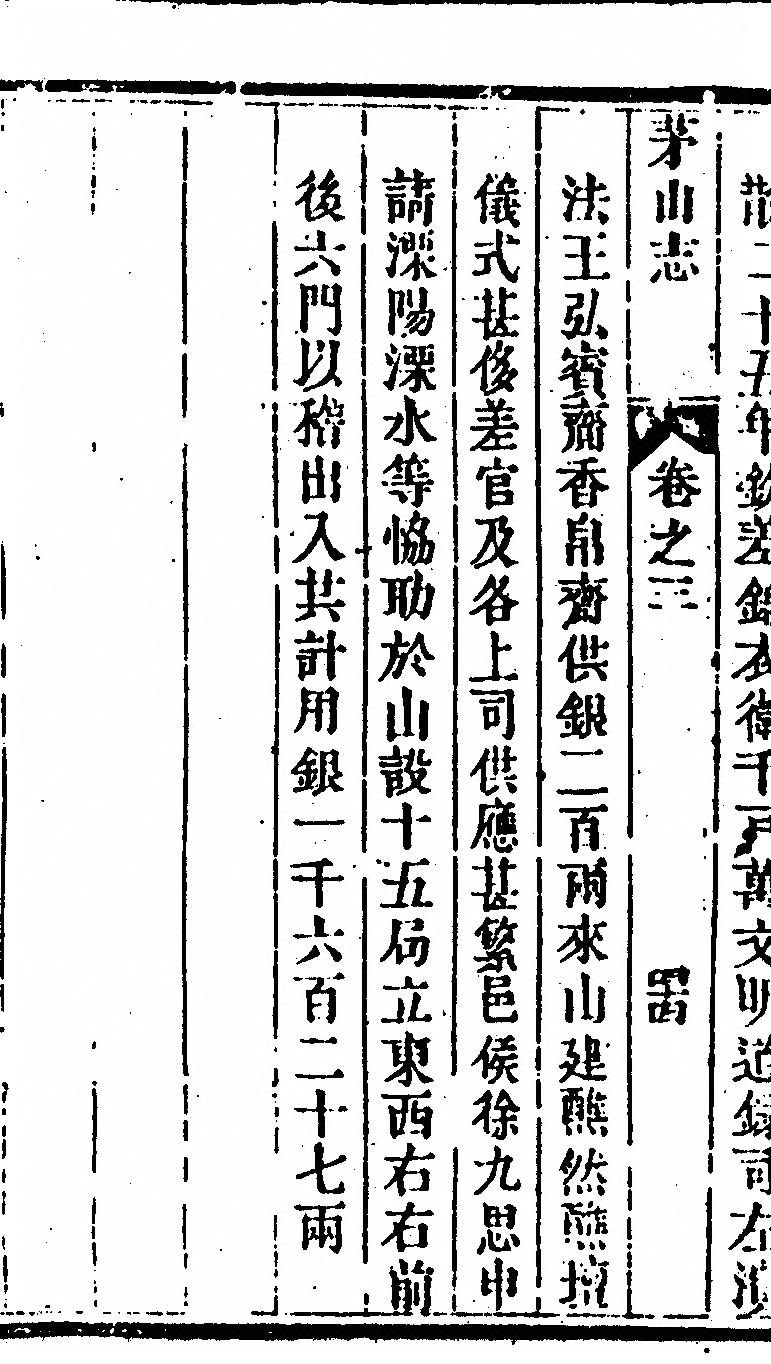 散二十五年欽差錦衣衛千戶萬文明道錄司左演
茅山志 卷之三
法王弘賓齎香帛齋供銀二百兩來山建醮然醮壇
儀式甚侈差官及各上司供應甚繁邑侯徐九思申
請溧陽溧水等恊助於山設十五局立東西右右前
後六門以稽出入共計用銀一千六百二十七兩